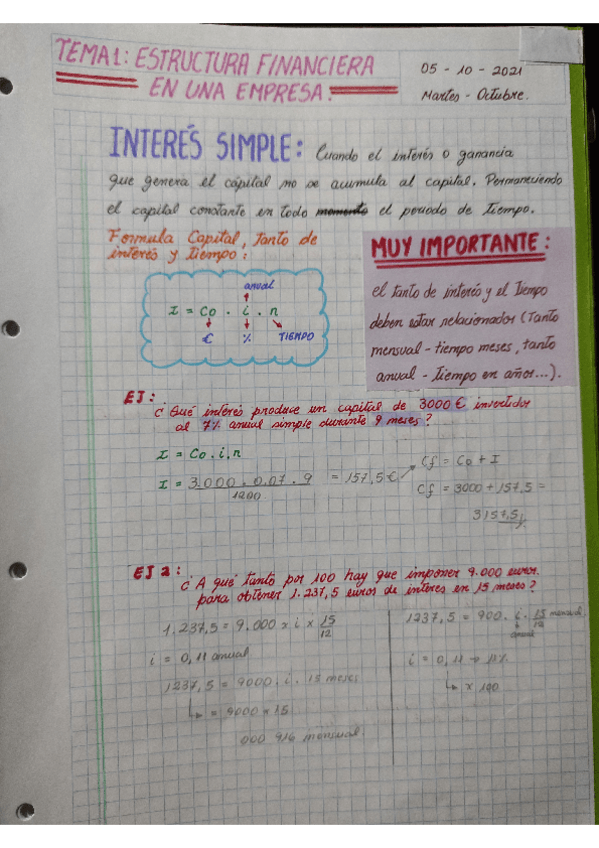 TEMA 1: ESTRUCTURA FINANCIERA
EN UNA EMPRESA.
05 - 10 - 2021
Martes - Octubre.
INTERÉS SIMPLE: Cuando el interés o ganancia
que genera el cápital no se acumula al capital. Permaneciendo
el capital constante en todo momento el periodo de tiempo.
Formula Capital, tanto de
interés y tiempo:
anual
I = Co . i . n
€ % TIEMPO
MUY IMPORTANTE:
el tanto de interés y el Tiempo
deben estar relacionados (Tanto
mensual - tiempo meses, tanto
anual - tiempo en años...).
EJ:
¿ Qué interés produce un capital de 3000 € invertidos
al 7% anual simple durante 9 meses?
I = Co . i . n
I = 3.000 . 0,07 . 9 = 157,5 €
1200
Cf = Co + I
Cf = 3000 + 157,5 =
3157,5
EJ 2:
¿ A qué tanto por 100 hay que imponer 9.000 euros
para obtener 1.237,5 euros de interes en 15 meses?
1.237,5 = 9.000 x i x 15/12
i = 0,11 anual
1237,5 = 9000 . i . 15 meses
= 9000 x 15
000 916 mensual.
1237,5 = 900 . i . 15/12 mensual
anual
i = 0,11 → 11%
x 100